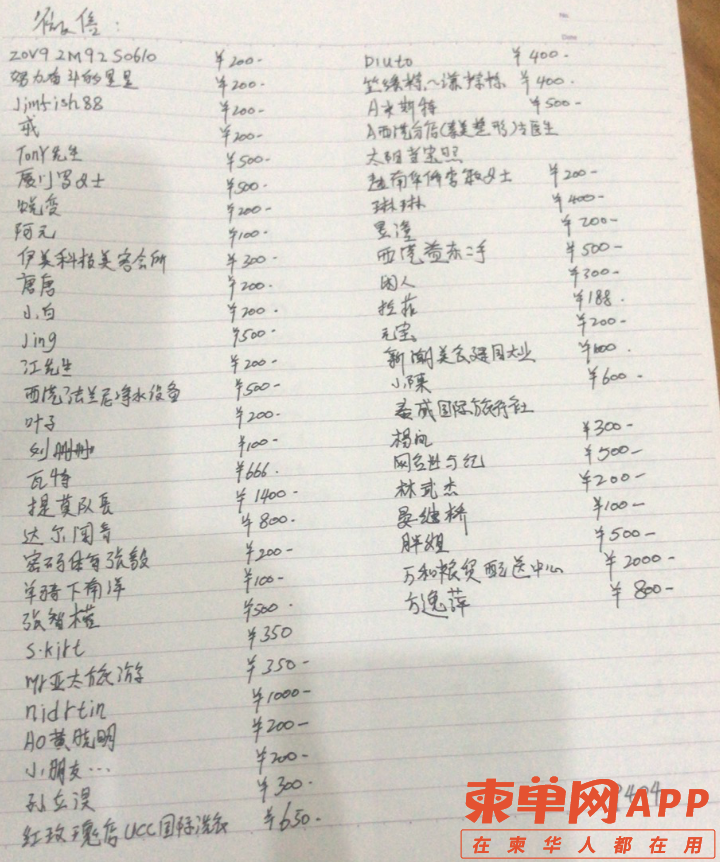 微信:
ZOV9 2M92 S0610 ¥200-
努力奋斗的星星 ¥200-
Jimfish88 ¥200-
戒 ¥200-
TonY先生 ¥500-
厦门罗女士 ¥500-
蜕变 ¥200-
阿元 ¥100-
伊美科技美容会所 ¥300-
唐唐 ¥200-
小白 ¥200-
Jing ¥500-
江先生 ¥200-
西港法兰尼净水设备 ¥500-
叶子 ¥200-
刘珊珊 ¥100-
瓦特 ¥666.
提莫队长 ¥1400-
达尔国青 ¥800-
密码保每张毅 ¥200-
单骑下南洋 ¥100-
张智 ¥500-
S.kirt ¥350
Mr亚太旅游 ¥350-
nidrtin ¥1000-
A0黄晓明 ¥200-
小朋友… ¥200-
孙立 ¥300-
红玫瑰店UCC国际洗衣 ¥650-
Diuto ¥400-
¥400-
A米斯特 ¥500-
A西港台信(美整形)方医生
太阳
越南华侨客敏女士 ¥200-
琳琳 ¥400-
昱澄 ¥200-
西港益东二手 ¥500-
因人 ¥300-
拉菲 ¥188.
元宝 ¥200-
新潮美食建国大业 ¥600.
小陳 ¥600-
泰威国际旅行社
杨向 ¥300-
网名 ¥500-
林武杰 ¥200-
晏继桥 ¥100-
胖姐 ¥500-
万和粮贸配送中心 ¥2000-
方逸萍 ¥800-
2404
柬单网APP
在柬华人都在用